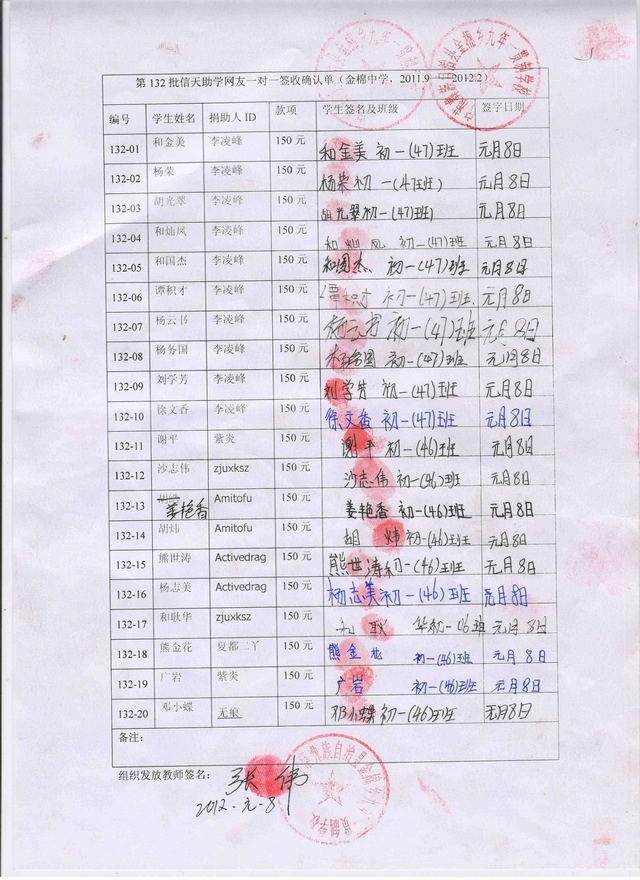 第 132 批信天助学网友一对一签收确认单（金棉中学，2011.9——2012.2）
编号 学生姓名 捐助人 ID 款项 学生签名及班级 签字日期
132-01 和金美 李凌峰 150 元 和金美 初一(47)班 元月8日
132-02 杨荣 李凌峰 150 元 杨荣 初一(47班) 元月8日
132-03 胡光翠 李凌峰 150 元 胡光翠初一(47班) 元月8日
132-04 和灿凤 李凌峰 150 元 和灿凤 初一(47)班 元月8日
132-05 和国杰 李凌峰 150 元 和国杰 初一(47)班 元月8日
132-06 谭积才 李凌峰 150 元 谭积才 初一(47)班 元月8日
132-07 杨云书 李凌峰 150 元 杨云书 初一(47)班 元月8日
132-08 杨务国 李凌峰 150 元 杨务国 初一(47)班 元月8日
132-09 刘学芳 李凌峰 150 元 刘学芳 初一(47)班 元月8日
132-10 徐文香 李凌峰 150 元 徐文香 初一(47)班 元月8日
132-11 谢平 紫炎 150 元 谢平 初一(46)班 元月8日
132-12 沙志伟 zjuxksz 150 元 沙志伟 初一(46)班 元月8日
132-13 姜艳香 Amitofu 150 元 姜艳香 初一(46)班 元月8日
132-14 胡炜 Amitofu 150 元 胡炜初一(46)班 元月8日
132-15 熊世涛 Activedrag 150 元 熊世涛初一(46)班 元月8日
132-16 杨志美 Activedrag 150 元 杨志美初一(46)班 元月8日
132-17 和耿华 zjuxksz 150 元 和耿华初一46班 元月8日
132-18 熊金花 夏都二丫 150 元 熊金花 初一(46)班 元月8日
132-19 广岩 紫炎 150 元 广岩 初一(46)班 元月8日
132-20 邓小蝶 无痕 150 元 邓小蝶初一(46)班 元月8日
备注：
组织发放教师签名： 张伟
2012.元.8